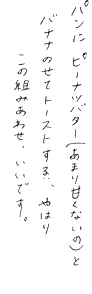 パンに ピーナッツバター(あまり甘くないの)と
バナナのせてトーストする、やはり
この組みあわせ、いいです。